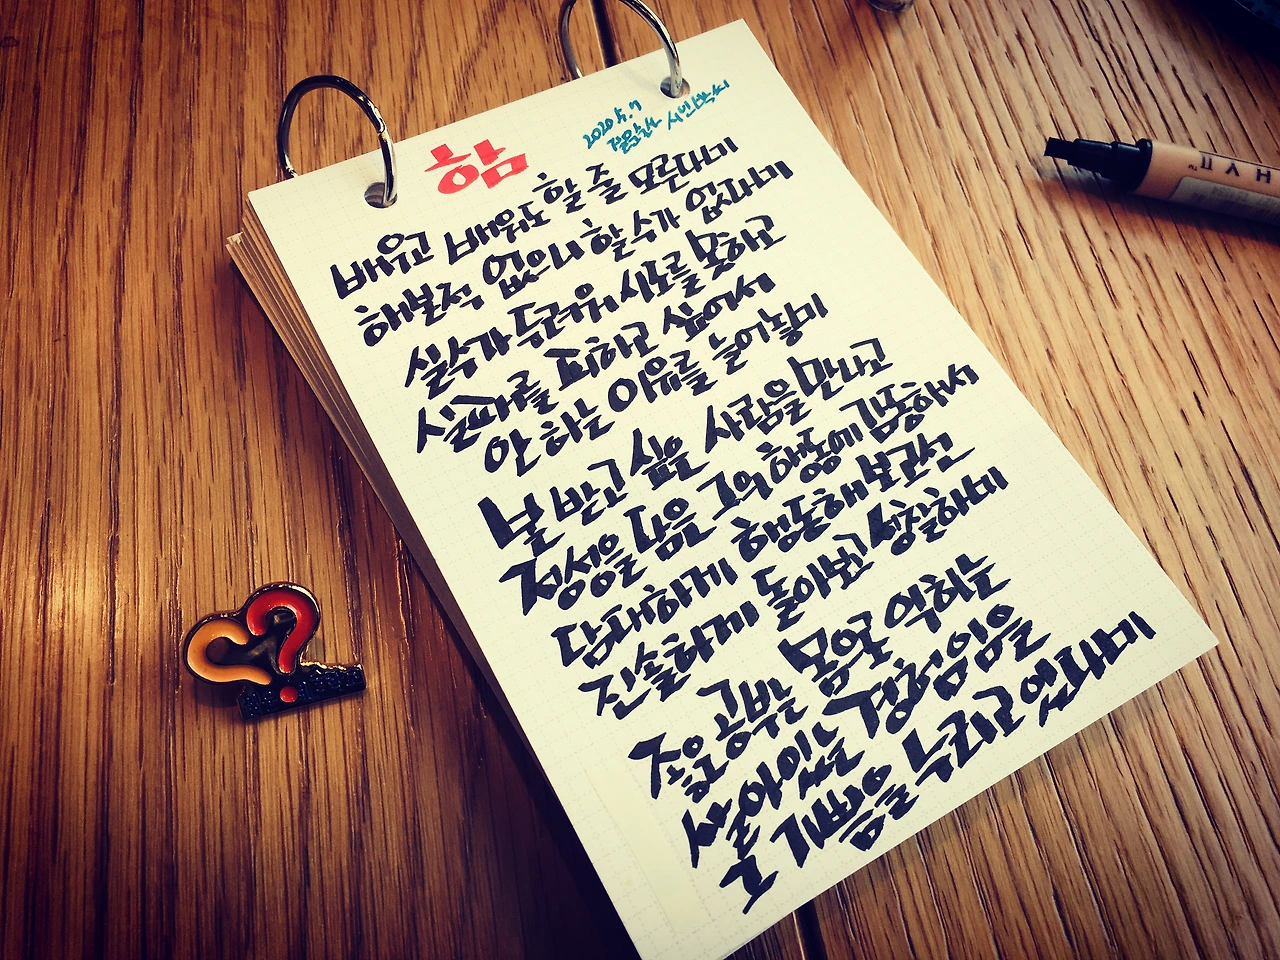 함
2020 4.7
질문술사 시인박씨
배우고 배워도 할 줄 모른다며
해본적 없으니 할 수가 없다며
실수가 두려워 시도를 못하고
실패를 피하고 싶어서
안 하는 이유를
본 받고 싶은 사람을 만나고
정성을 담은 그의 행동에 감동해서
담대하게 행동해보고선
진솔하게 돌아보고 성찰하며
좋은 공부는 몸으로 익히는
살아있는 경험임을
그 기쁨을 누리고 있다며